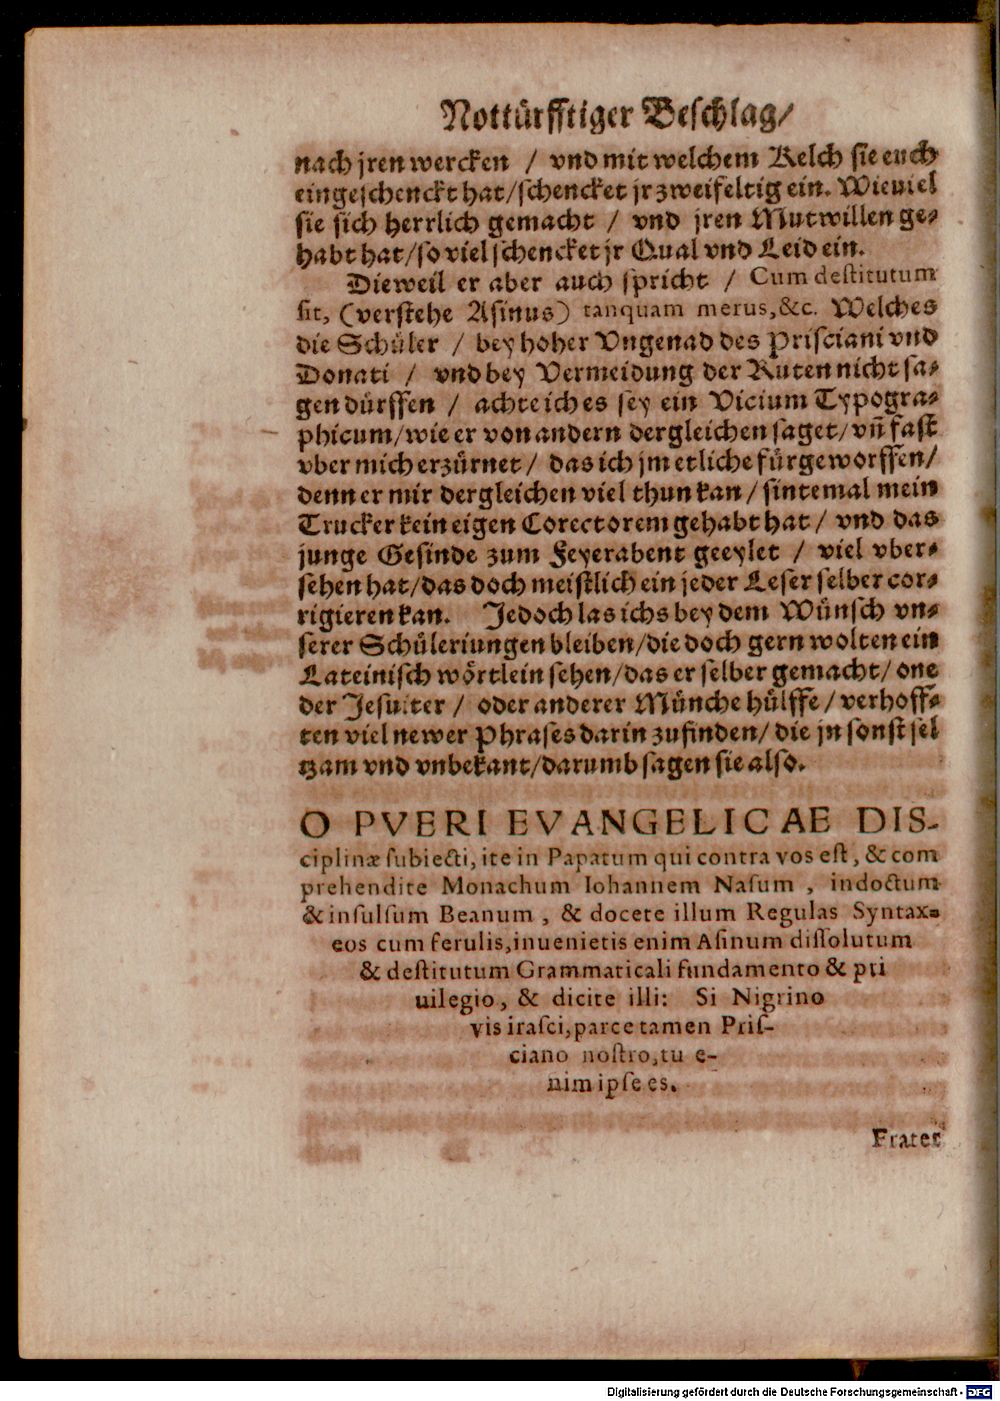 Nottürfftiger Beschlag/
nach jren wercken / vnd mit welchem Kelch sie euch
eingeschenckt hat/schencket jr zweifeltig ein. Wieuiel
sie sich herrlich gemacht / vnd jren Mutwillen ge-
habt hat/so viel schencket jr Qual vnd Leid ein.
Dieweil er aber auch spricht / Cum destitutum
sit, (verstehe Asinus) tanquam merus,&c. Welches
die Schüler / bey hoher Vngenad des Prisciani vnd
Donati / vnd bey Vermeidung der Ruten nicht sa-
gen dürffen / achte ich es sey ein Vicium Typogra-
phicum/wie er von andern dergleichen saget/vñ fast
vber mich erzürnet/ das ich jm etliche fürgeworffen/
denn er mir dergleichen viel thun kan/sintemal mein
Trucker kein eigen Corectorem gehabt hat/ vnd das
junge Gesinde zum Feyerabent geeylet / viel vber-
sehen hat/das doch meistlich ein jeder Leser selber cor-
rigieren kan. Jedoch las ichs bey dem Wünsch vn-
serer Schülerjungen bleiben/die doch gern wolten ein
Lateinisch wörtlein sehen/das er selber gemacht/one
der Jesuiter / oder anderer Münche hülffe/verhoff-
ten viel newer Phrases darin zufinden/die jn sonst sel
tzam vnd vnbekant/darumb sagen sie also.
O PVERI EVANGELICAE DIS-
ciplinæ subiecti, ite in Papatum qui contra vos est, & com
prehendite Monachum Iohannem Nasum , indoctum
& insulsum Beanum , & docete illum Regulas Syntax-
eos cum ferulis,inuenietis enim Asinum dissolutum
& destitutum Grammaticali fundamento & pri
uilegio, & dicite illi: Si Nigrino
vis irasci,parce tamen Pris-
ciano nostro,tu e-
nim ipse es.
Frater
Digitalisierung gefördert durch die Deutsche Forschungsgemeinschaft - DFG